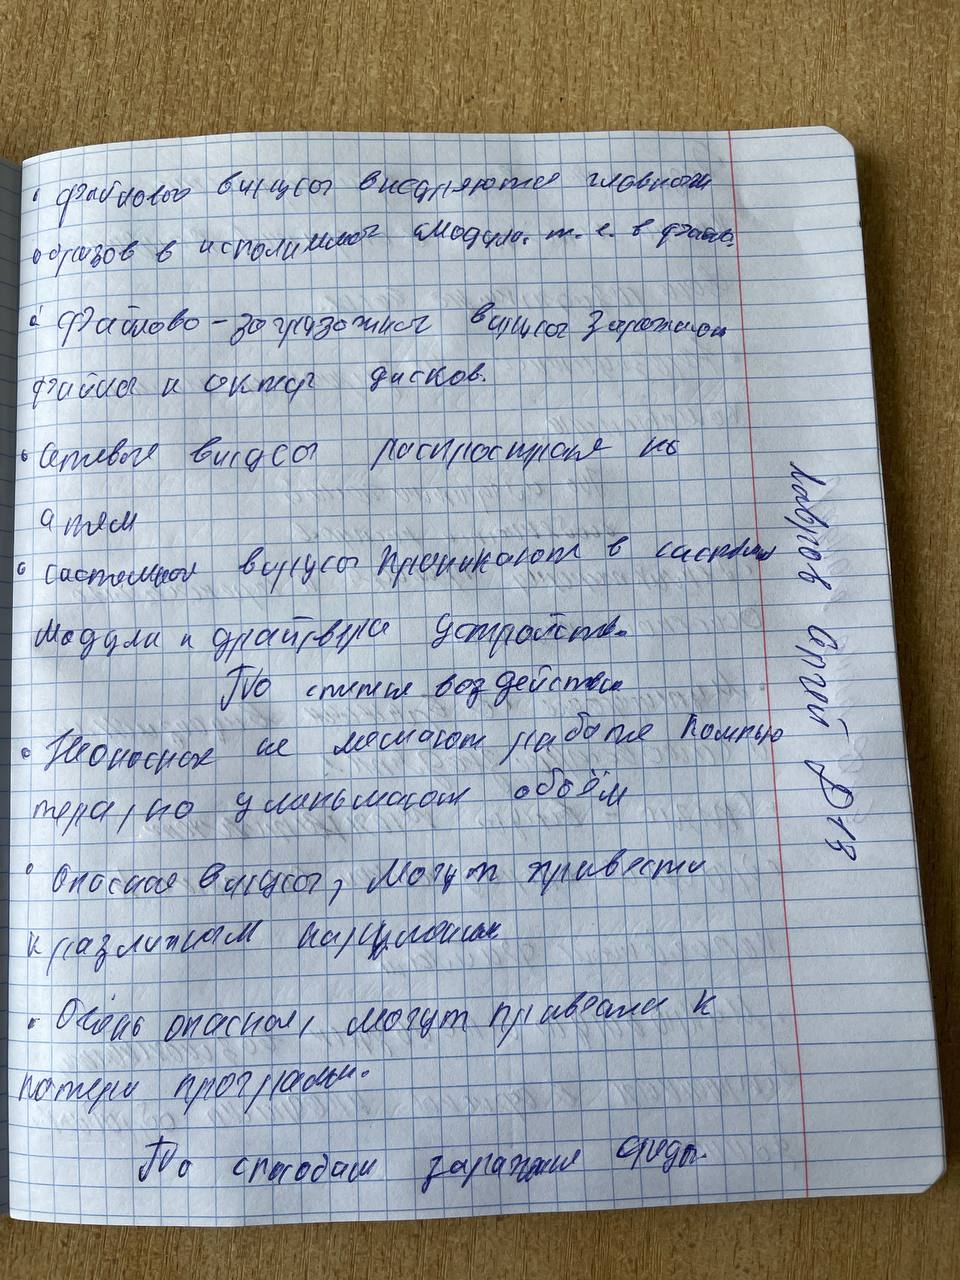 файловые вирусы внедряются главным
образов в исполнимые модули. т. е. в файлы.
файлово-загрузочные вирусы заражают
файлы и сектор дисков.
Сетевые вирусы распростране по
сетям
системные вирусы проникают в системн
модули и драйвера устройств.
По степени воздействи
Неопасные не мешают работе компью
тера, но уменьшают объём
опасные вирусы, могут привести
к различным нарушениям
Очень опасные, могут привести к
потери программ.
По способам заражения среды.
Лавров В13